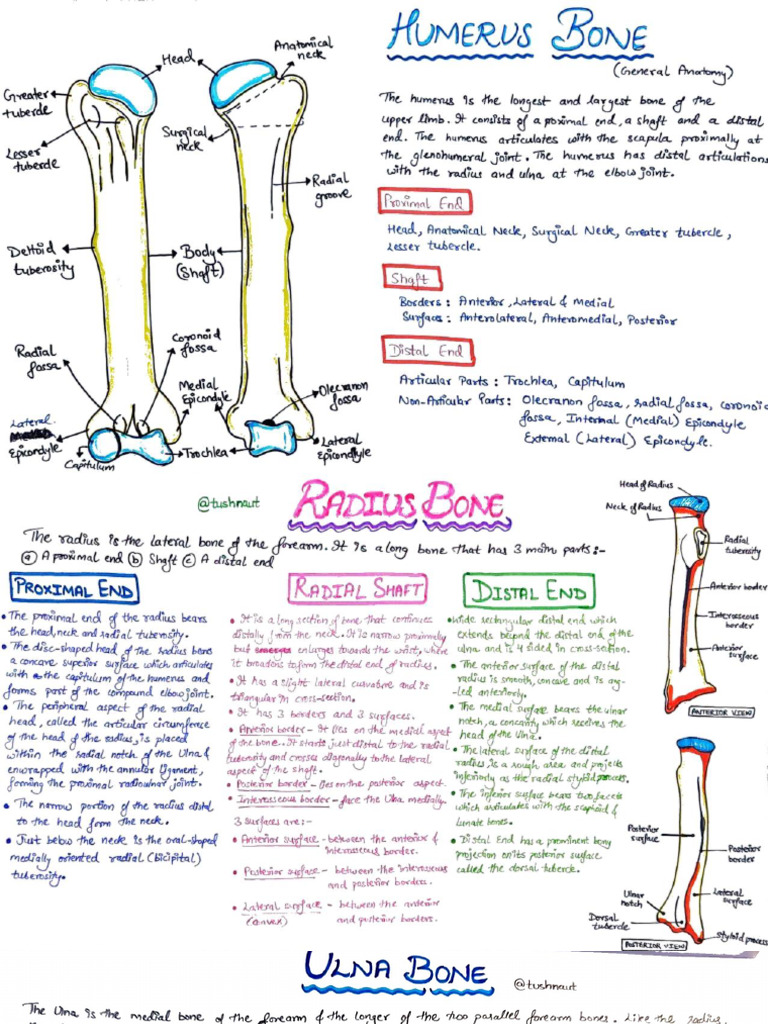 HUMERUS BONE
(General Anatomy)
The humerus is the longest and largest bone of the
upper limb. It consists of a proximal end, a shaft and a distal
end. The humerus articulates with the scapula proximally at
the glenohumeral joint. The humerus has distal articulations
with the radius and ulna at the elbow joint.
Proximal End
Head, Anatomical Neck, Surgical Neck, Greater tubercle,
Lesser tubercle.
Shaft
Borders: Anterior, Lateral & Medial
Surfaces: Anterolateral, Anteromedial, Posterior
Distal End
Articular Parts: Trochlea, Capitulum
Non-Articular Parts: Olecranon fossa, radial fossa, coronoid
fossa, Internal (Medial) Epicondyle
External (Lateral) Epicondyle.
Head
Anatomical
neck
Greater
tubercle
Lesser
tubercle
Surgical
neck
Radial
groove
Deltoid
tuberosity
Body
(Shaft)
Radial
fossa
Coronoid
fossa
Medial
Epicondyle
Olecranon
fossa
Lateral
Epicondyle
Capitulum
Trochlea
Lateral
Epicondyle
@tushnaut
RADIUS BONE
The radius is the lateral bone of the forearm. It is a long bone that has 3 main parts:-
(a) A proximal end (b) Shaft (c) A distal end
PROXIMAL END
• The proximal end of the radius bears
the head, neck and radial tuberosity.
• The disc-shaped head of the radius bears
a concave superior surface which articulates
with the capitulum of the humerus and
forms part of the compound elbow joint.
• The peripheral aspect of the radial
head, called the articular circumference
of the head of the radius, is placed
within the radial notch of the Ulna &
enwrapped with the annular ligament,
forming the proximal radioulnar joint.
• The narrow portion of the radius distal
to the head form the neck.
• Just below the neck is the oval-shaped
medially oriented radial (bicipital)
tuberosity.
RADIAL SHAFT
• It is a long section of bone that continues
distally from the neck. It is narrow proximally
but enlarges towards the wrist, where
it broadens to form the distal end of radius.
• It has a slight lateral curvature and is
triangular in cross-section.
• It has 3 borders and 3 surfaces.
• Anterior border - It lies on the medial aspect
of the bone. It starts just distal to the radial
tuberosity and crosses diagonally to the lateral
aspect of the shaft.
• Posterior border - lies on the posterior aspect.
• Interosseous border - face the Ulna medially.
3 surfaces are:-
• Anterior surface - between the anterior &
interosseous border.
• Posterior surface - between the interosseous
and posterior borders.
• Lateral surface - between the anterior
(convex) and posterior borders.
DISTAL END
• Wide rectangular distal end which
extends beyond the distal end of the
ulna and is 4 sided in cross-section.
• The anterior surface of the distal
radius is smooth, concave and is ang-
led anteriorly.
• The medial surface bears the ulnar
notch, a concavity which receives the
head of the Ulna.
• The lateral surface of the distal
radius is a rough area and projects
inferiorly as the radial styloid process.
• The inferior surface bears two facets
which articulates with the scaphoid &
lunate bones.
• Distal End has a prominent bony
projection on its posterior surface
called the dorsal tubercle.
Head of Radius
Neck of Radius
Radial
tuberosity
Anterior border
Interosseous
border
Anterior
surface
ANTERIOR VIEW
Posterior
surface
Posterior
border
Ulnar
notch
Lateral
surface
Dorsal
tubercle
Styloid process
POSTERIOR VIEW
ULNA BONE
@tushnaut
The Ulna is the medial bone of the forearm & the longer of the two parallel forearm bones. Like the radius,